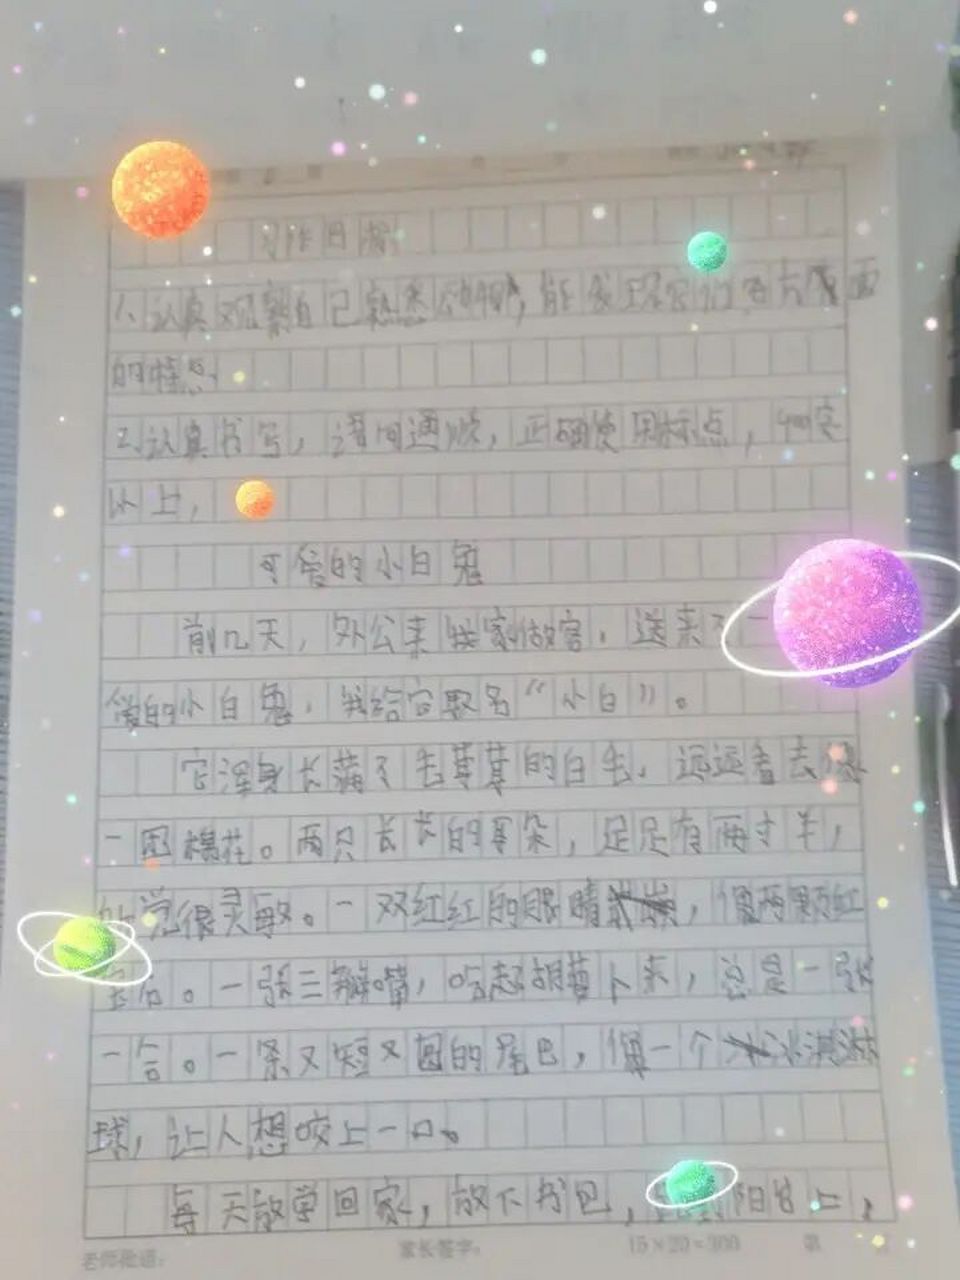 习作目标
1、认真观察自己熟悉的动物,能发现它们各方面
的特点.
2.认真书写,语句通顺,正确使用标点,400字
以上,
可爱的小白兔
前几天,外公来我家做客,送来了一
的小白兔,我给它取名“小白”。
它浑身长满了毛茸茸的白毛,远远看去像
一团棉花。两只长长的耳朵,足足有两寸半,
觉很灵敏。一双红红的眼睛,像两颗红
宝石。一张三瓣嘴,吃起胡萝卜来,总是一张
一合。一条又短又圆的尾巴,像一个冰淇淋
球,让人想咬上一口。
每天放学回家,放下书包,阳台上,
老师批语: 家长签字: 15×20=300 第